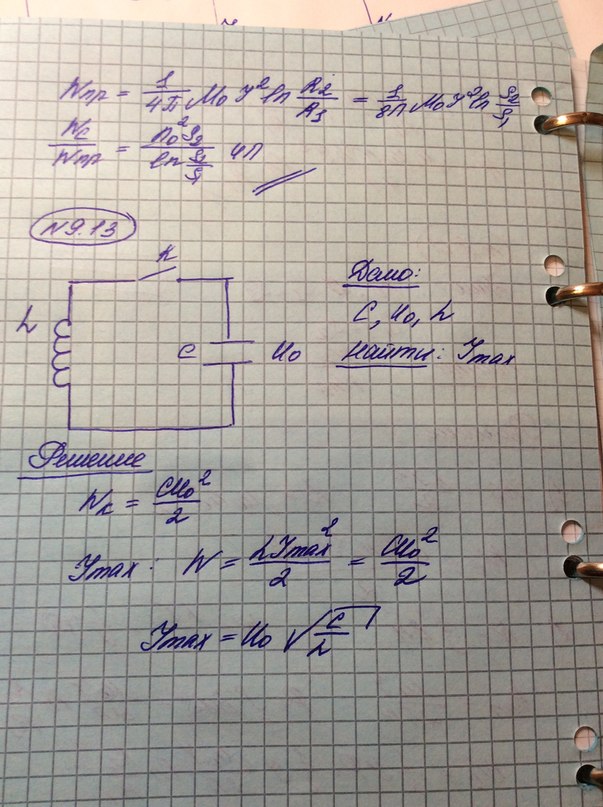 Wпр = 1/4π μ₀ I² ln R₂/R₁ = 1/8π μ₀ I² ln S₂/S₁
W₀/Wпр = n₀² S₂ / ln S₂/S₁ 4π
N 9.13
K
L
C
U₀
Дано:
C, U₀, L
Найти: Imax
Решение
Wк = CU₀²/2
Imax. W = LImax²/2 = CU₀²/2
Imax = U₀ √C/L